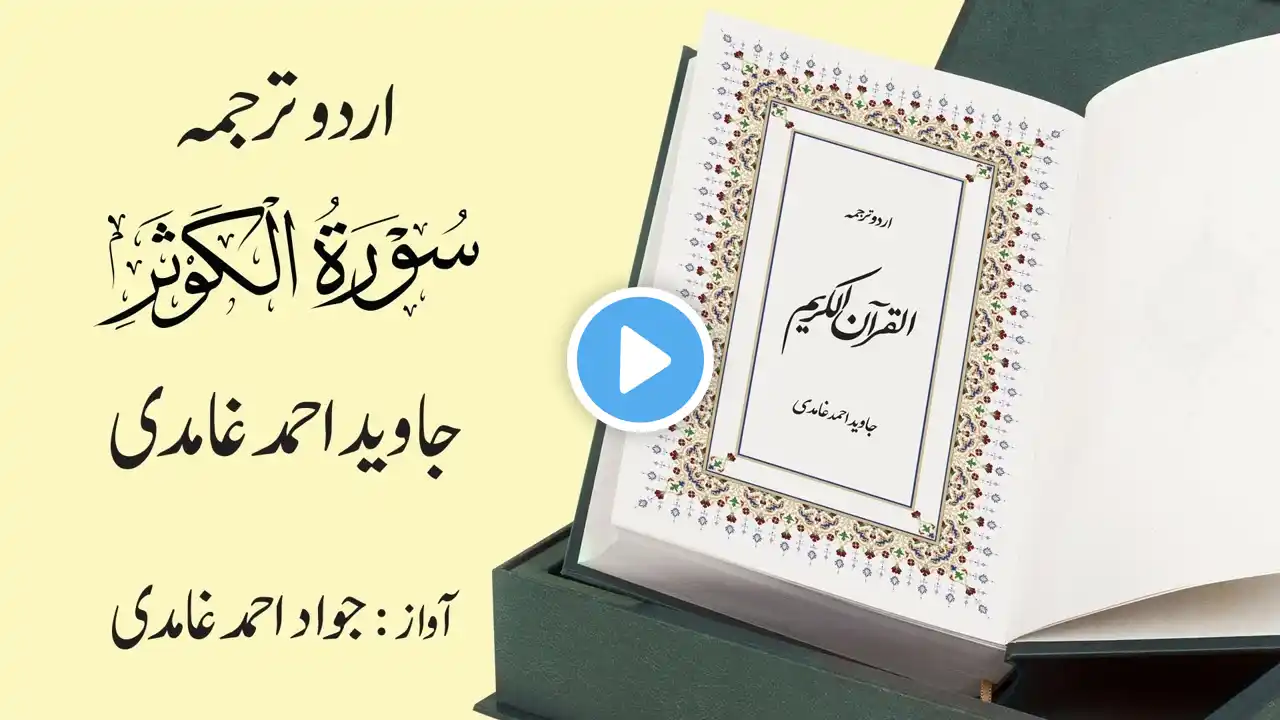 اردو ترجمہ
سُوْرَةُ الْكَوْثَرِ
جاوید احمد غامدی
آواز : جواد احمد غامدی
اردو ترجمہ
القرآن الکریم
جاوید احمد غامدی